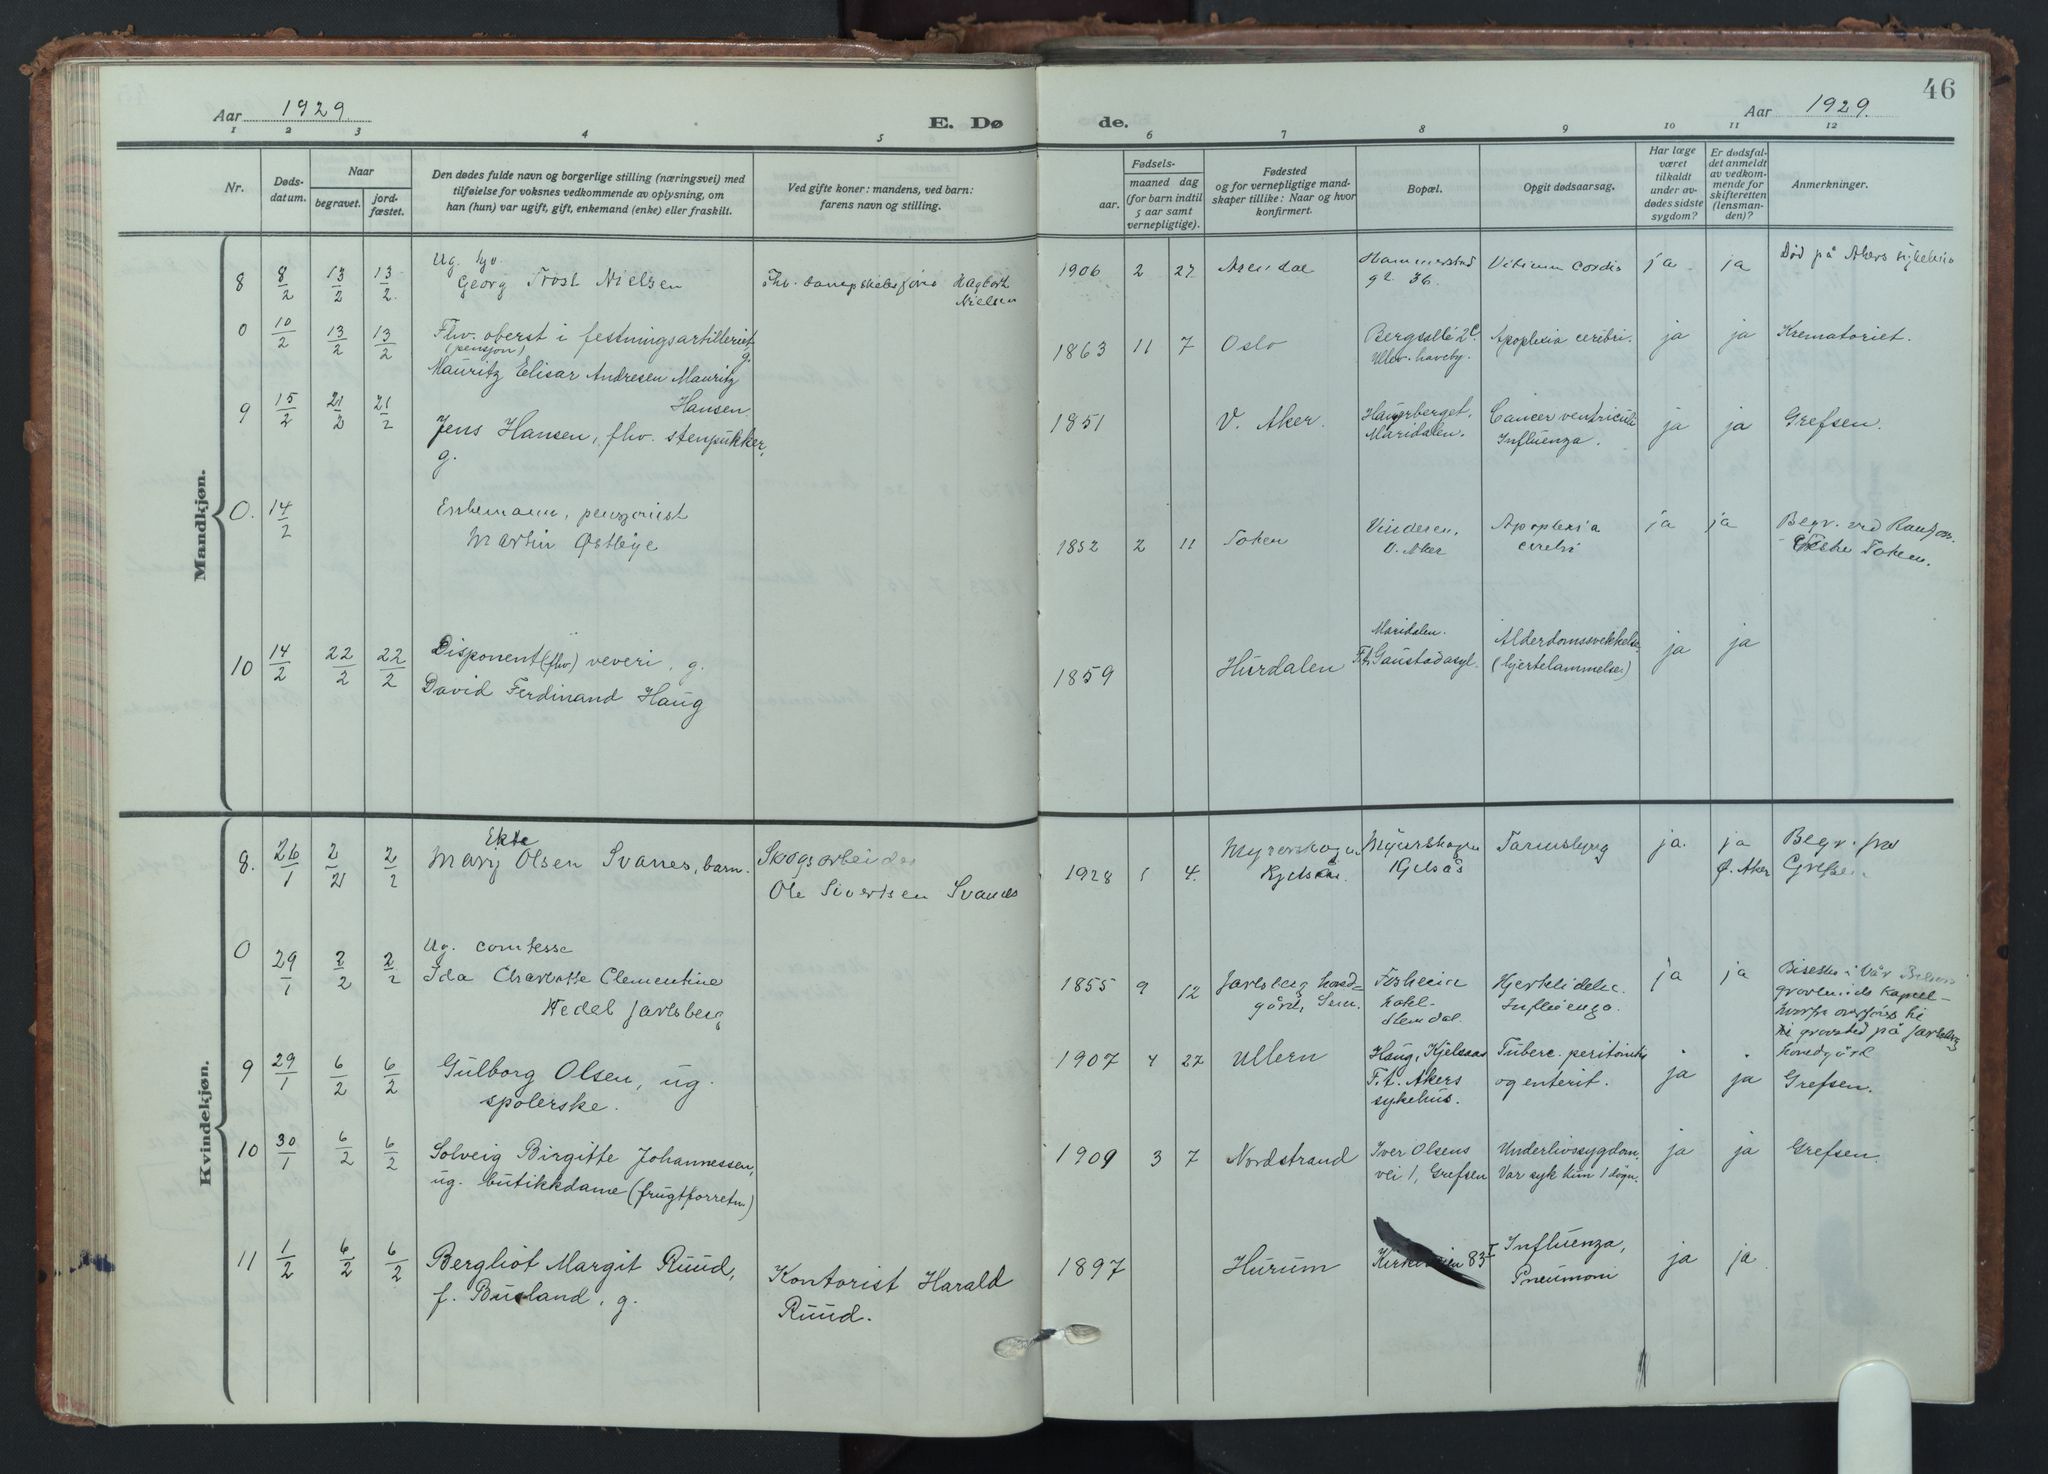 46
Aar 1929.
E. Dø
de.
Aar 1929.
1 2 3 4 5 6 7 8 9 10 11 12
Nr.
Døds-
datum.
Naar
begravet.
jord-
fæstet.
Den dødes fulde navn og borgerlige stilling (næringsvei) med
tilføielse for voksnes vedkommende av oplysning, om
han (hun) var ugift, gift, enkemand (enke) eller fraskilt.
Ved gifte koner: mandens, ved barn:
farens navn og stilling.
Fødsels-
aar.
maaned dag
(for barn indtil
5 aar samt
vernepligtige).
Fødested
og for vernepligtige mand-
skaper tillike: Naar og hvor
konfirmert.
Bopæl.
Opgit dødsaarsag.
Har læge
været
tilkaldt
under av-
dødes sidste
sygdom?
Er dødsfal-
det anmeldt
av vedkom-
mende for
skifteretten
(lensman-
den)?
Anmerkninger.
Mandkjøn.
8 8/2 13/2 13/2.
Ug.
Georg Trost Nielsen
Fhv. dampskibsfører Hagbart
Nielsen
1906 2 27 Arendal
Hammerstad
gt. 36.
Vitium cordis ja. ja
Død på Akers sykehus
0 10/2 13/2 13/2
Fhv. oberst i festningsartilleriet,
(pensjon) g.
Mauritz Elisar Andresen Mauritz
Hansen.
1863 11 7 Oslo
Bergsallé 2c.
Ullev. haveby.
Apoplexia cerebri. ja ja Krematoriet.
9 15/2 21/2 21/2
Jens Hansen, fhv. stenpukker,
g.
1851 V. Aker.
Haugerberget,
Maridalen.
Cancer ventriculi
Influenza.
ja ja Grefsen.
0. 14/2
Enkemann, pensjonist
Martin Østbye
1852 2 11 Toten
Vinderen,
V. Aker
Apoplexia
cerebri
ja ja
Begr. ved
Toten.
10 14/2 22/2 22/2
Disponent (fhv) veveri, g.
David Ferdinand Haug
1859 Hurdalen
Maridalen.
F.t. Gaustad asyl.
Alderdomssvekkelse
(hjertelammelse)
ja ja
Kvindekjøn.
8. 26/1 2/2 2/2
Ekte
Mary Olsen Svanes, barn.
Skogsarbeider
Ole Sivertsen Svanes
1928 5 4.
Myrerskogen
Kjelsås.
Myrerskogen
Kjelsås
Tarmslyng ja. ja
Ø. Aker
Begr. fra
Grefsen.
0 29/1 2/2 2/2
Ug. comtesse
Ida Charlotte Clementine
Wedel Jarlsberg
1855 9 12
Jarlsberg hoved=
gård, Sem.
Fosheim
hotel
Slemdal.
Hjertelidelse.
Influenza.
ja ja
Bisettes i Vår Frelsers
gravlunds kapell
hvorfra overføres til
gravsted på Jarlsberg
hovedgård
9 29/1 6/2 6/2
Gulborg Olsen, ug.
spolerske.
1907 4 27 Ullern
Haug, Kjelsaas
F.t. Akers
sykehus.
Tuberc. peritonitis
og enterit.
ja ja Grefsen.
10 30/1 6/2 6/2
Solveig Birgitte Johannessen,
ug. butikkdame (frugtforretn)
1909 3 7 Nordstrand
Iver Olsens
vei 1, Grefsen
Underlivssygdom.
Var syk kun 1 døgn.
ja ja Grefsen.
11 1/2 6/2 6/2
Bergliot Margit Ruud,
f. Busland, g.
Kontorist Harald
Ruud.
1897 Hurum
Kirkeveien 83 I
Influenza,
Pneumoni
ja ja